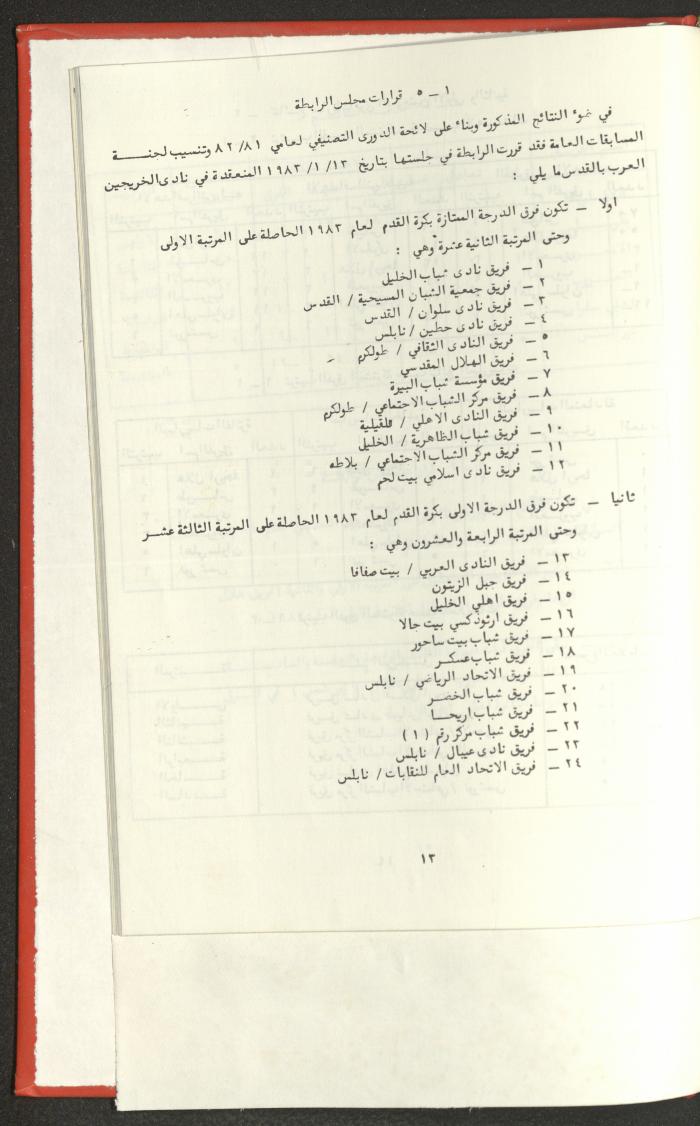 ١ – ٥ قرارات مجلس الرابطة
في ضوء النتائج المذكورة وبناء على لائحة الدورى التصنيفي لعامي ٨٢/٨١ وتنسيب لجنــــة
المسابقات العامة فقد قررت الرابطة في جلستها بتاريخ ١٩٨٣/١/١٣ المنعقدة في نادى الخريجين
العرب بالقدس ما يلي :
اولا – تكون فرق الدرجة الممتازة بكرة القدم لعام ١٩٨٣ الحاصلة على المرتبة الاولى
وحتى المرتبة الثانية عشرة وهي :
١ – فريق نادى شباب الخليل
٢ – فريق جمعية الشبان المسيحية / القدس
٣ – فريق نادى سلوان / القدس
٤ – فريق نادى حطين / نابلس
٥ – فريق النادى الثقافي / طولكرم
٦ – فريق الهلال المقدسي
٧ – فريق مؤسسة شباب البيرة
٨ – فريق مركز الشباب الاجتماعي / طولكرم
٩ – فريق النادى الاهلي / قلقيلية
١٠ – فريق شباب الظاهرية / الخليل
١١ – فريق مركز الشباب الاجتماعي / بلاطه
١٢ – فريق نادى اسلامي بيت لحم
ثانيا – تكون فرق الدرجة الاولى بكرة القدم لعام ١٩٨٣ الحاصلة على المرتبة الثالثة عشــر
وحتى المرتبة الرابعة والعشرون وهي :
١٣ – فريق النادى العربي / بيت صفافا
١٤ – فريق جبل الزيتون
١٥ – فريق اهلي الخليل
١٦ – فريق ارثوذكسي بيت جالا
١٧ – فريق شباب بيت ساحور
١٨ – فريق شباب عسكــر
١٩ – فريق الاتحاد الرياضي / نابلس
٢٠ – فريق شباب الخضــر
٢١ – فريق شباب اريحــا
٢٢ – فريق شباب مركز رقم ( ١ )
٢٣ – فريق نادى عيبال / نابلس
٢٤ – فريق الاتحاد العام للنقابات / نابلس
١٣